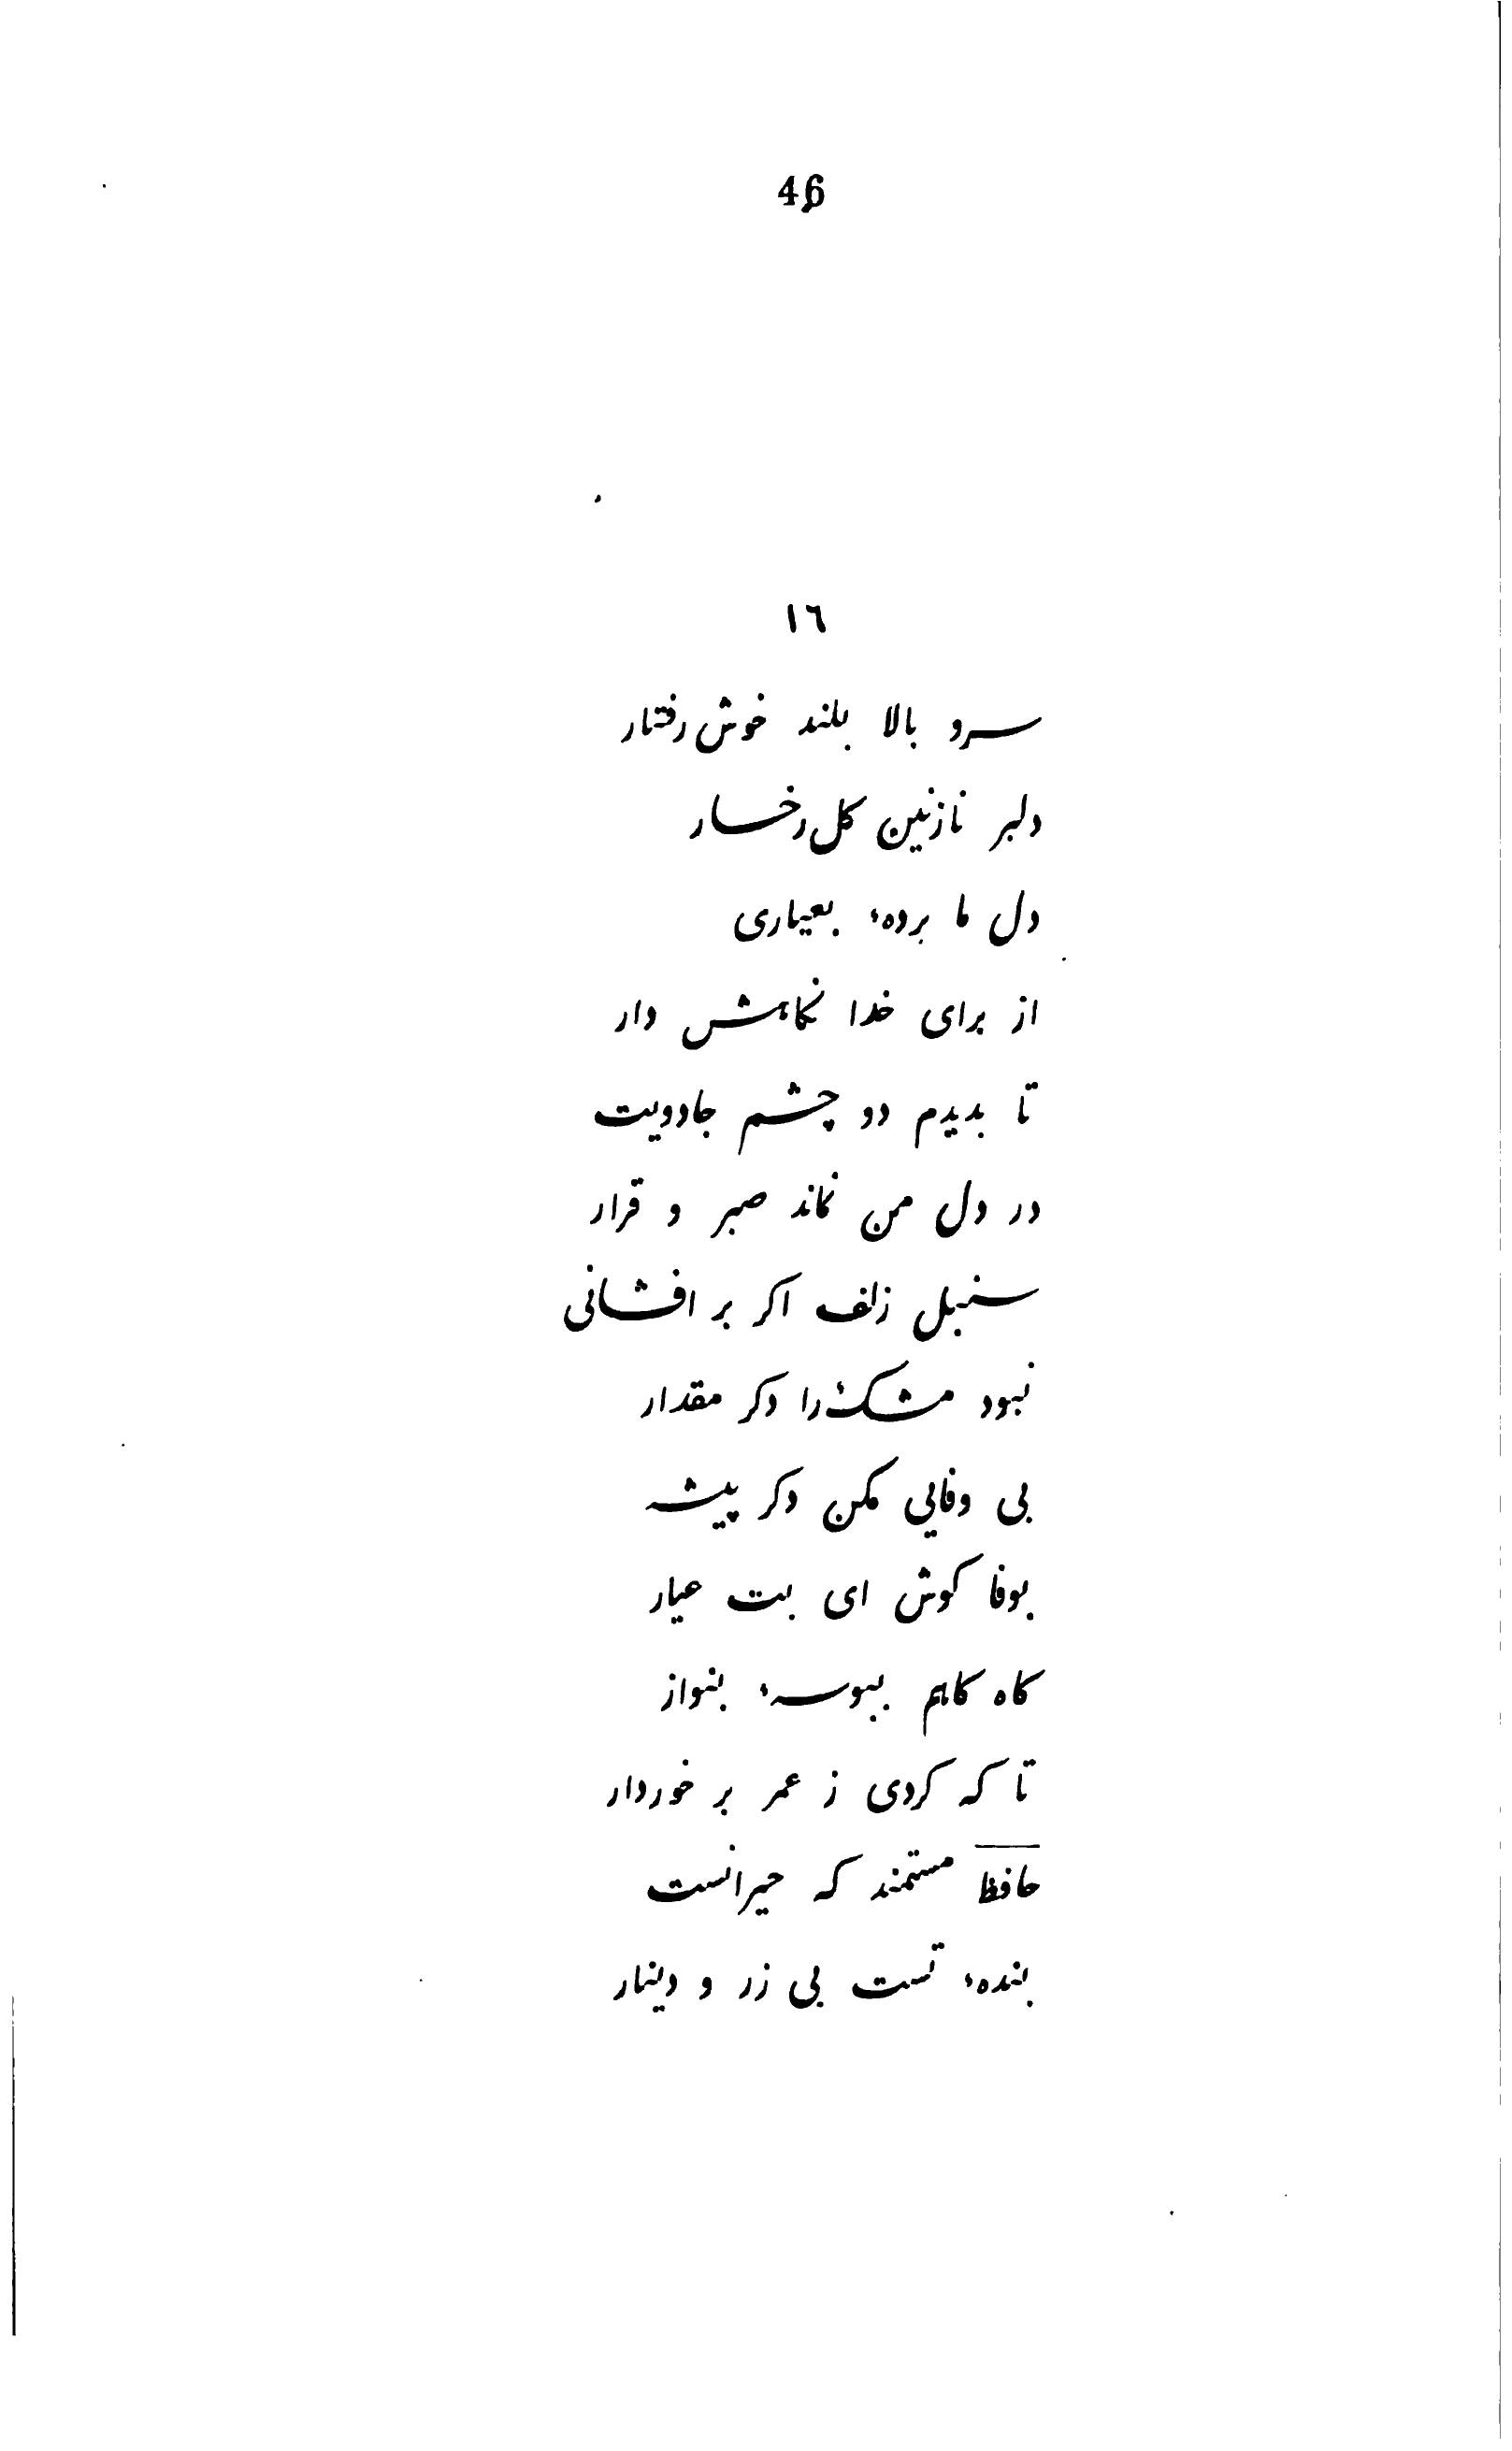 46
١٦
سرو بالا بلند خوش رفتار
دلبر نازنین کل رخسار
دل ما بردهٔ بعیاری
از برای خدا نکاهش دار
تا بدیدم دو چشم جادویت
در دل من نماند صبر و قرار
سنبل زلف اکر بر افشانی
نبود مشک را دکر مقدار
بی وفایی مکن دکر پیشه
بوفا کوش ای بت عیار
کاه کاهم ببوسهٔ بنواز
تا که کردی ز عمر بر خوردار
حافظ مستمند که حیرانست
بندهٔ تست بی زر و دینار